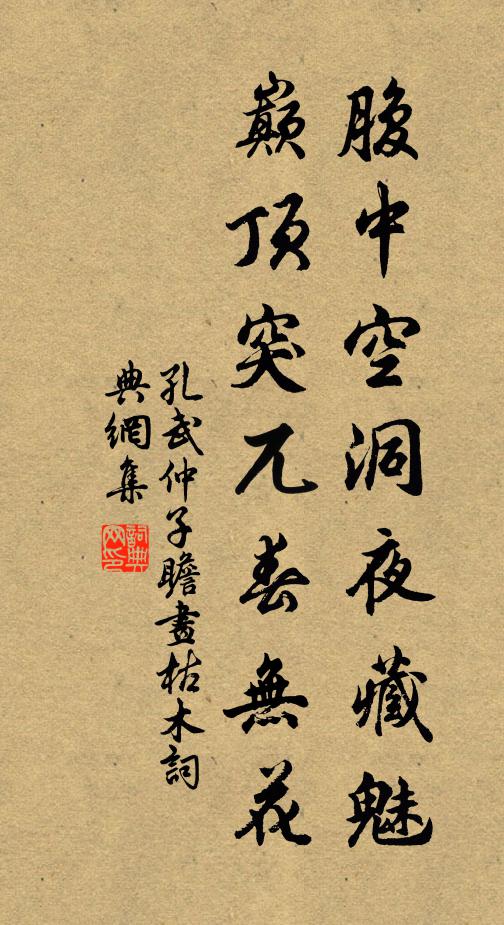 腹中空洞夜藏魅
巔頂突兀春無花
孔武仲子瞻畫枯木詞
典網集
詞典網印